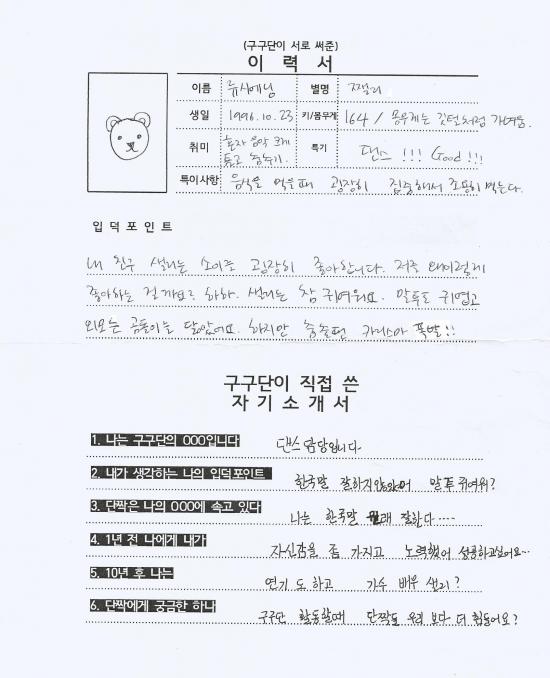 (구구단이 서로 써준)
이 력 서
이름 류시에닝 별명 쩰리
생일 1996.10.23 키/몸무게 164 / 몸무게는 깃털처럼 가벼움.
취미 혼자 음악 크게 틀고 춤추기. 특기 댄스 !!! Good !!!
특이사항 음식을 먹을때 굉장히 집중해서 조용히 먹는다.
입덕포인트
내 친구 샐리는 소이를 굉장히 좋아합니다. 저를 왜이렇게
좋아하는 걸까요? 하하. 샐리는 참 귀여워요. 말투도 귀엽고
외모는 곰돌이를 닮았어요. 하지만 춤출땐 카리스마 폭발!!
구구단이 직접 쓴
자 기 소 개 서
1. 나는 구구단의 OOO입니다 댄스 담당입니다-
2. 내가 생각하는 나의 입덕포인트 한국말 잘하지않아어 말투 귀여워?
3. 단짝은 나의 OOO에 속고 있다 나는 한국말 원래 잘한다 ....
4. 1년 전 나에게 내가 자신감을 좀 가지고 노력했어 성공하고싶어요...
5. 10년 후 나는 연기 도 하고 가수 배우 샐리?
6. 단짝에게 궁금한 하나 구구단 활동할때 단짝도 우리 보다 더 힘들어요?